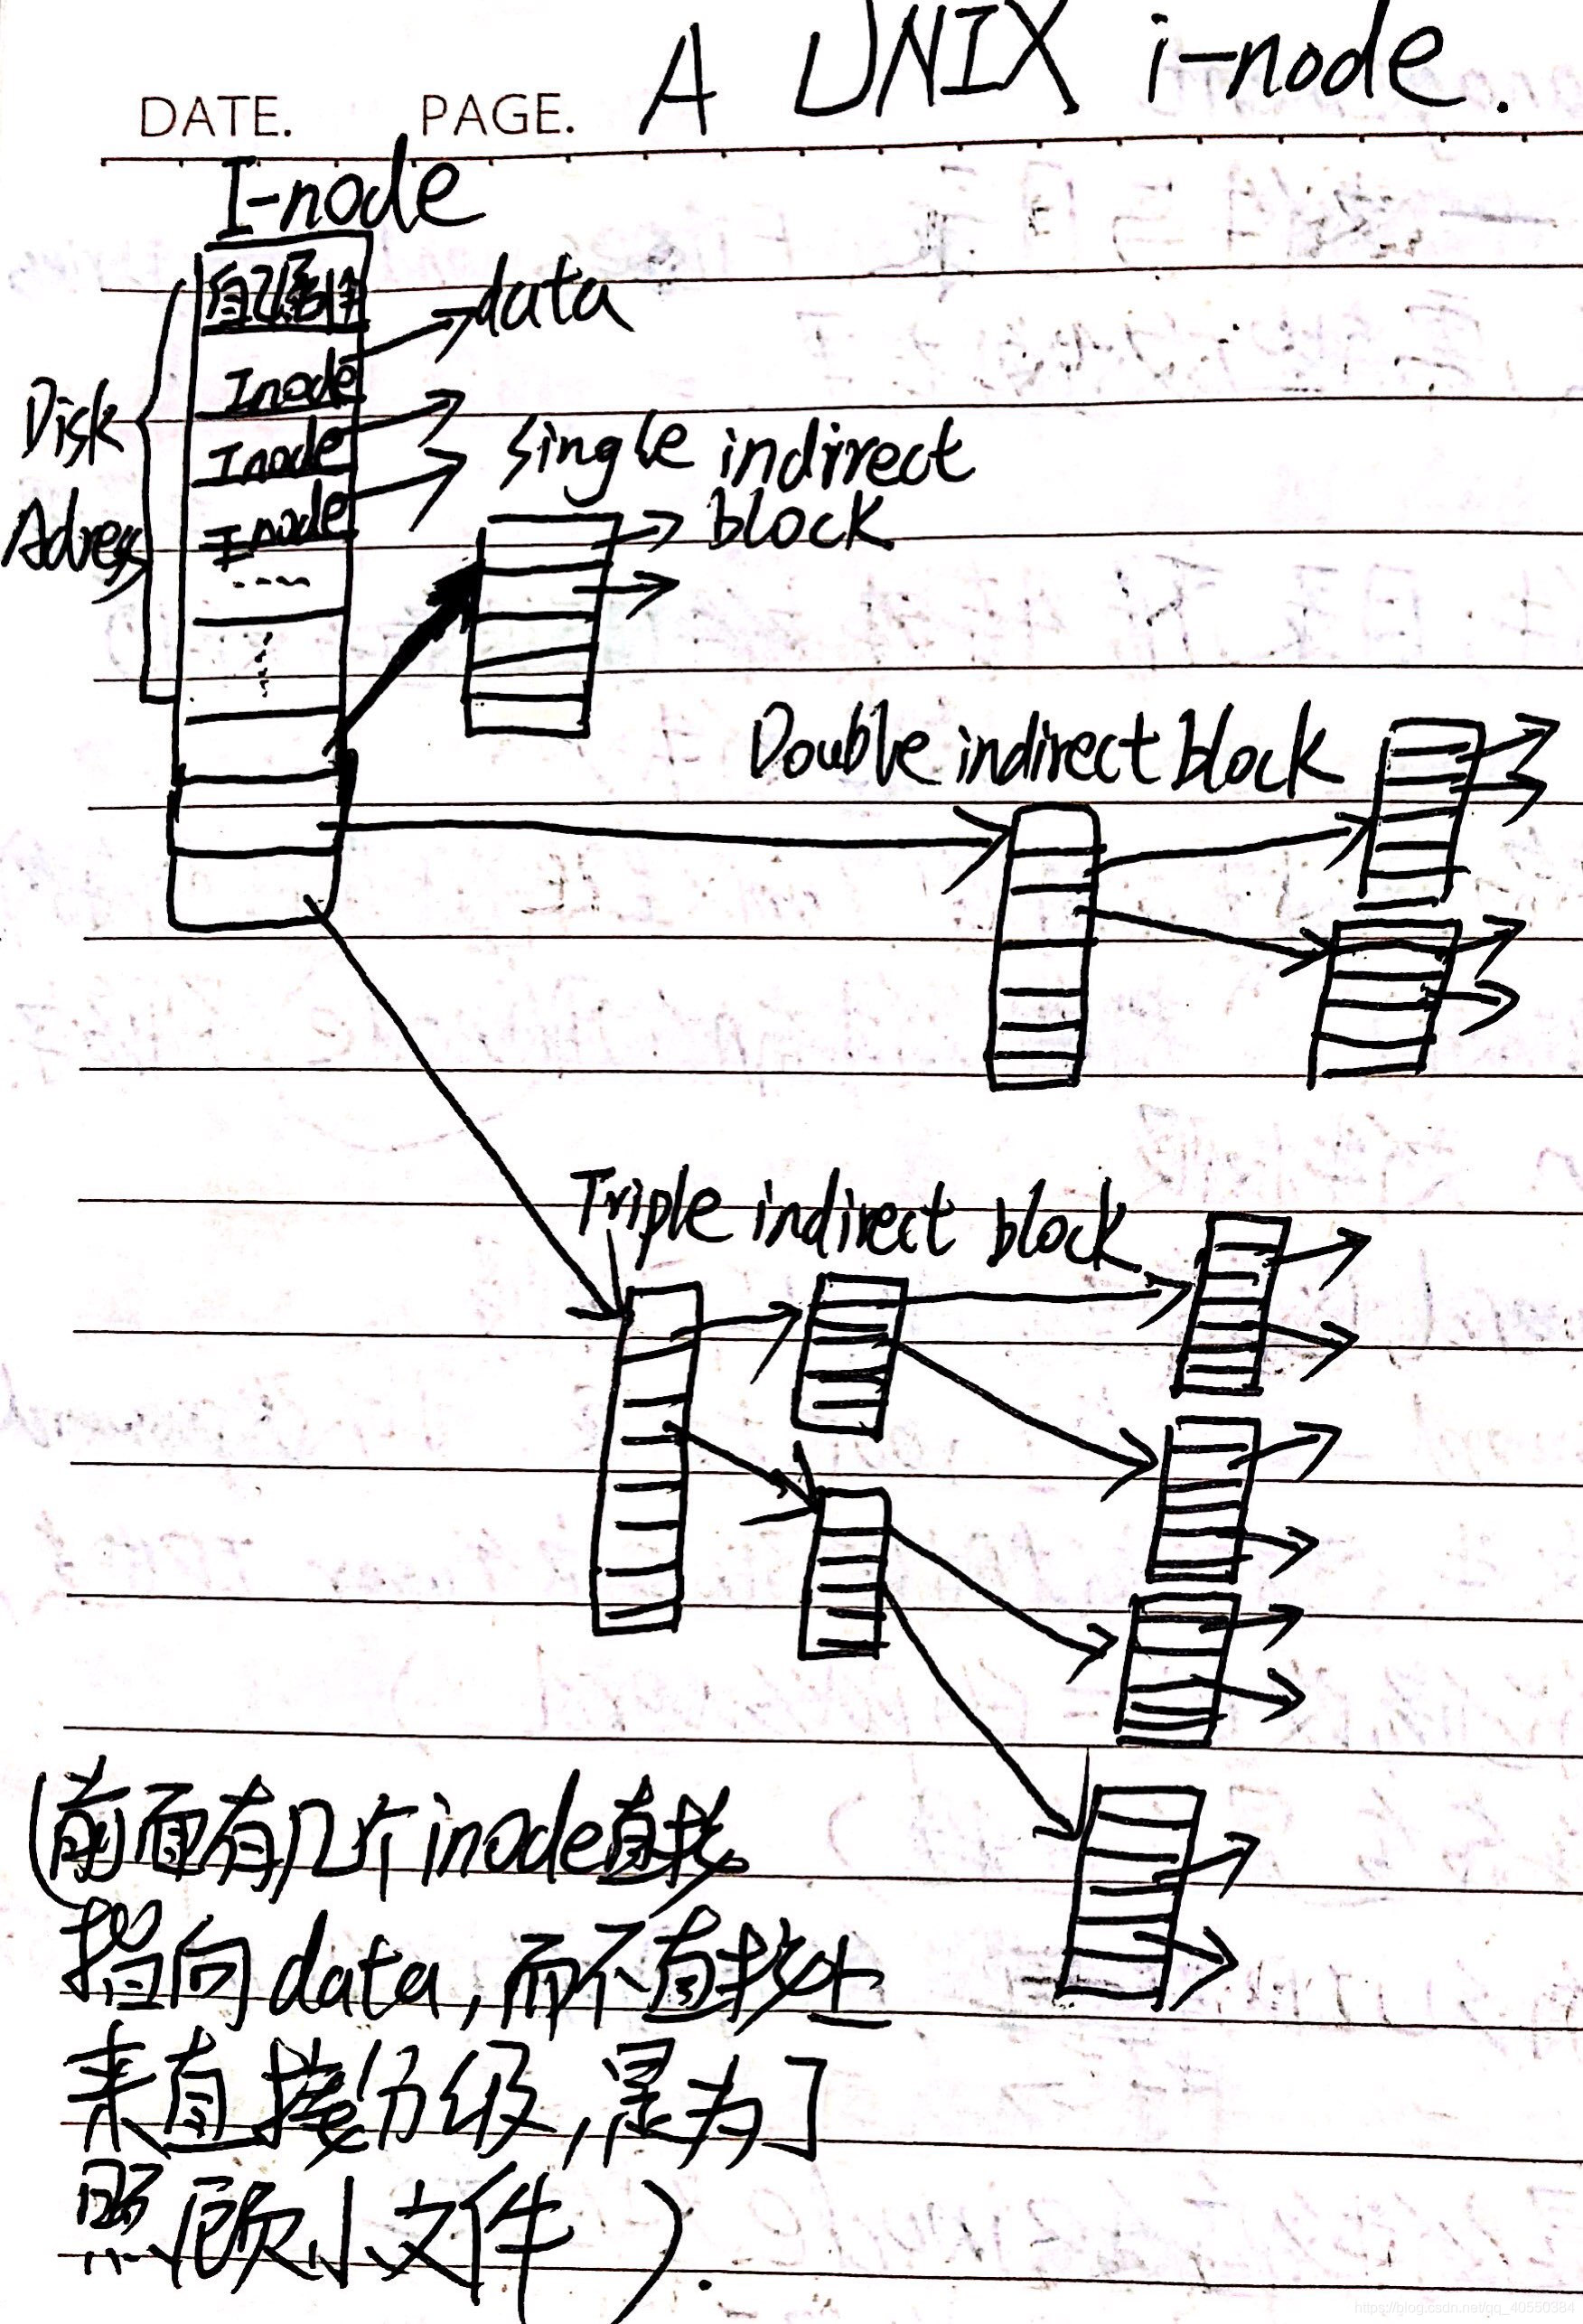 A UNIX i-node.
DATE. PAGE.
I-node
自己属性
data
Inode
Inode
Inode
Disk
Adress
single indirect
block
Double indirect block
Triple indirect block
(前面有几个inode直接
指向data,而不直接上
来直接分级,是为了
照顾小文件).
https://blog.csdn.net/qq_40550384